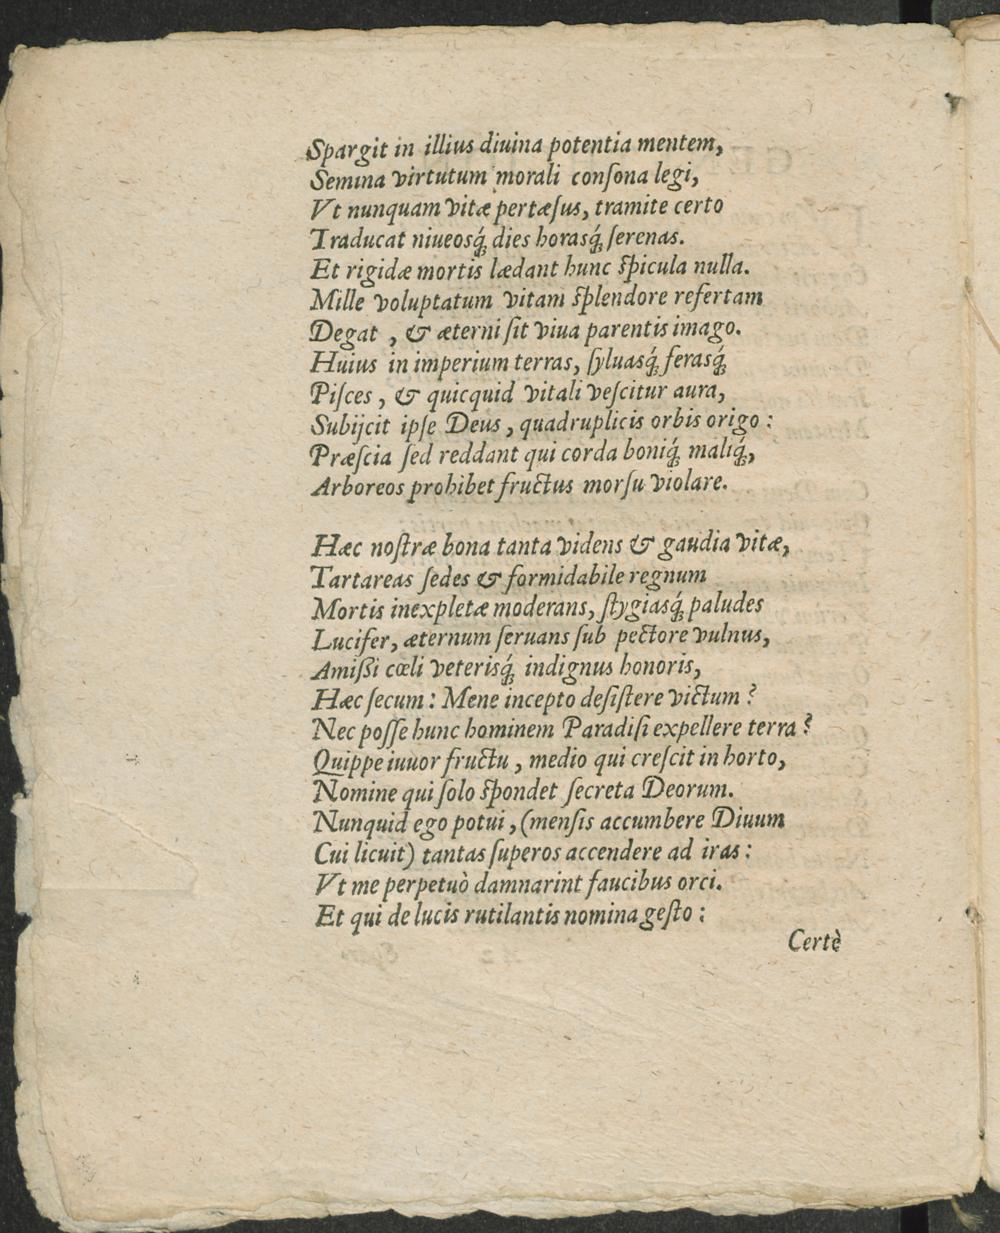 Spargit in illius diuina potentia mentem,
Semina virtutum morali conſona legi,
Vt nunquam vitæ pertæſus, tramite certo
Traducat niueosq́; dies horasq́; ſerenas.
Et rigidæ mortis lædant hunc ſpicula nulla.
Mille voluptatum vitam ſplendore refertam
Degat , & æterni ſit viua parentis imago.
Huius in imperium terras, ſyluasq́; ferasq́;
Piſces , & quicquid vitali veſcitur aura,
Subijcit ipſe Deus , quadruplicis orbis origo :
Præſcia ſed reddant qui corda boniq́; maliq́;,
Arboreos prohibet fructus morſu violare.
Hæc noſtræ bona tanta videns & gaudia vitæ,
Tartareas ſedes & formidabile regnum
Mortis inexpletæ moderans, ſtygiasq́; paludes
Lucifer, æternum ſeruans ſub pectore vulnus,
Amißi cœli veterisq́; indignus honoris,
Hæc ſecum : Mene incepto deſiſtere victum ?
Nec poſſe hunc hominem Paradiſi expellere terra ?
Quippe iuuor fructu , medio qui creſcit in horto,
Nomine qui ſolo ſpondet ſecreta Deorum.
Nunquid ego potui , (menſis accumbere Diuum
Cui licuit) tantas ſuperos accendere ad iras :
Vt me perpetuò damnarint faucibus orci.
Et qui de lucis rutilantis nomina geſto :
Certè